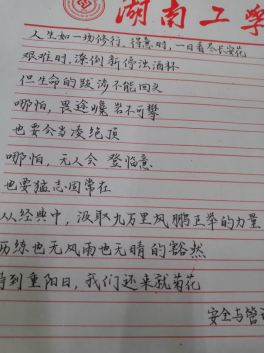 湖南工学
人生如一场修行，得意时，一日看尽长安花
艰难时，潦倒新停浊酒杯
但生命的跋涉不能回头
哪怕，畏途巉岩不可攀
也要会当凌绝顶
哪怕，无人会登临意
也要猛志固常在
从经典中，汲取九万里风鹏正举的力量
历练也无风雨也无晴的豁然
得到重阳日，我们还来就菊花
安全与管